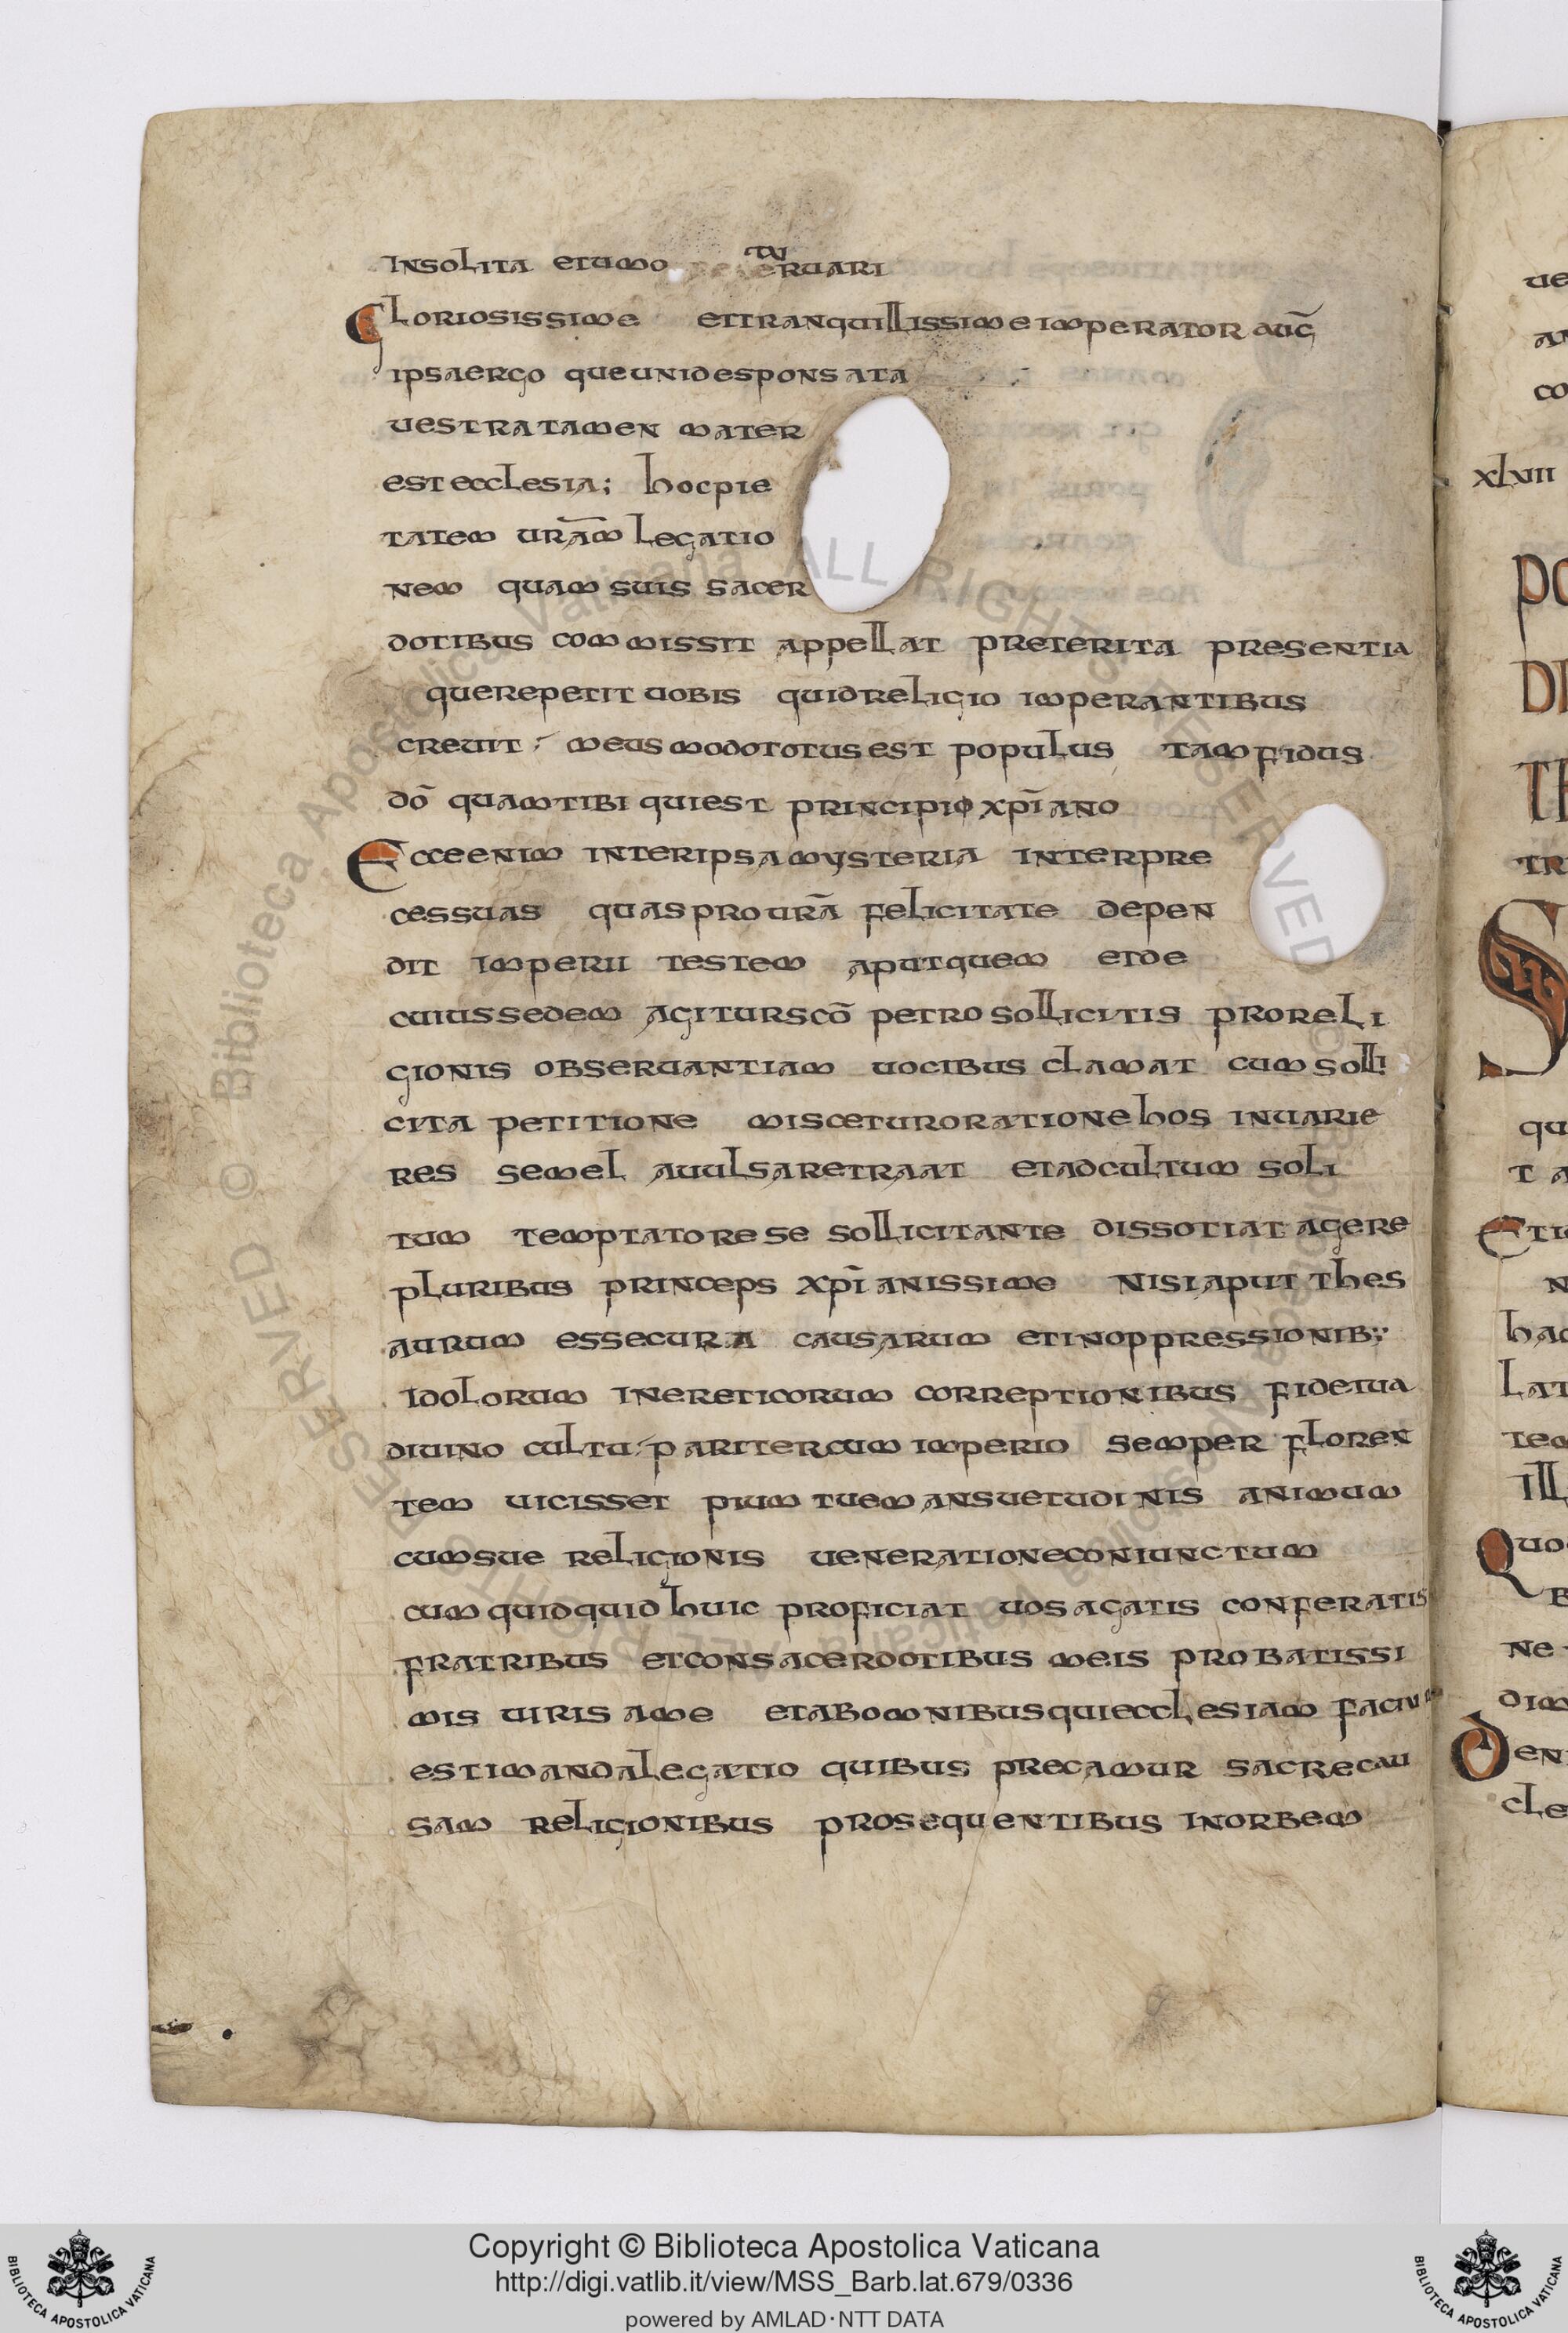 INSOLITA ETUMO ERUARI
GLORIOSISSIME ETTRANQUILLISSIME IMPERATOR AUG̅
IPSAERGO QUEUNIDESPONSATA
UESTRATAMEN MATER
ESTECCLESIA; HOCPIE
TATEM UR̅AM LEGATIO
NEM QUAMSUIS SACER
DOTIBUS COMMISSIT APPELLAT PRETERITA PRESENTIA
QUEREPETIT UOBIS QUIDRELIGIO IMPERANTIBUS
CREUIT MEUSMODOTOTUSEST POPULUS TAMFIDUS
DO̅ QUAMTIBI QUIEST PRINCIPIO XPI̅ANO
ECCEENIM INTERIPSAMYSTERIA INTERPRE
CESSUAS QUASPROUR̅A FELICITATE DEPEN
DIT IMPERII TESTEM APUTQUEM ETDE
CUIUSSEDEM AGITURSCO̅ PETROSOLLICITIS PRORELI
GIONIS OBSERUANTIAM UOCIBUS CLAMAT CUMSOLLI
CITA PETITIONE MISCETURORATIONEHOS INUARIE
RES SEMEL AUULSARETRAAT ETADCULTUM SOLI
TUM TEMPTATORESE SOLLICITANTE DISSOTIAT AGERE
PLURIBUS PRINCEPS XPI̅ANISSIME NISIAPUT THES
AURUM ESSECURA CAUSARUM ETINOPPRESSIONIB;
IDOLORUM INERETICORUM CORREPTIONIBUS FIDETUA
DIUINO CULTU PARITERCUM IMPERIO SEMPER FLOREN
TEM UICISSET PIUM TUEMANSUETUDINIS ANIMUM
CUMSUE RELIGIONIS UENERATIONECONIUNCTUM
CUMQUIDQUID HUIC PROFICIAT UOSAGATIS CONFERATIS
FRATRIBUS ETCONSACERDOTIBUS MEIS PROBATISSI
MIS UIRIS AME ETABOMNIBUSQUIECCLESIAM FACIUM
ESTIMANDALEGATIO QUIBUS PRECAMUR SACRECAU
SAM RELIGIONIBUS PROSEQUENTIBUS INORBEM
XLVII
Copyright © Biblioteca Apostolica Vaticana
http://digi.vatlib.it/view/MSS_Barb.lat.679/0336
powered by AMLAD·NTT DATA